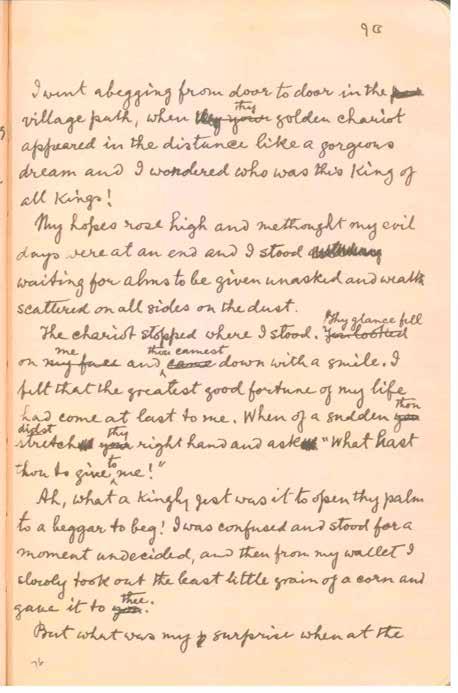 90
I went abegging from door to door in the
village path, when thy golden chariot
appeared in the distance like a gorgeous
dream and I wondered who was this King of
all Kings!
My hopes rose high and methought my evil
days were at an end and I stood
waiting for alms to be given unasked and wealth
scattered on all sides on the dust.
The chariot stopped where I stood. You looked Thy glance fell
on my face me and came thou camest down with a smile. I
felt that the greatest good fortune of my life
had come at last to me. When of a sudden you thou
didst stretch your thy right hand and ask "What hast
thou to give to me!"
Ah, what a kingly jest was it to open thy palm
to a beggar to beg! I was confused and stood for a
moment undecided, and then from my wallet I
slowly took out the least little grain of a corn and
gave it to you thee.
But what was my surprise when at the
76